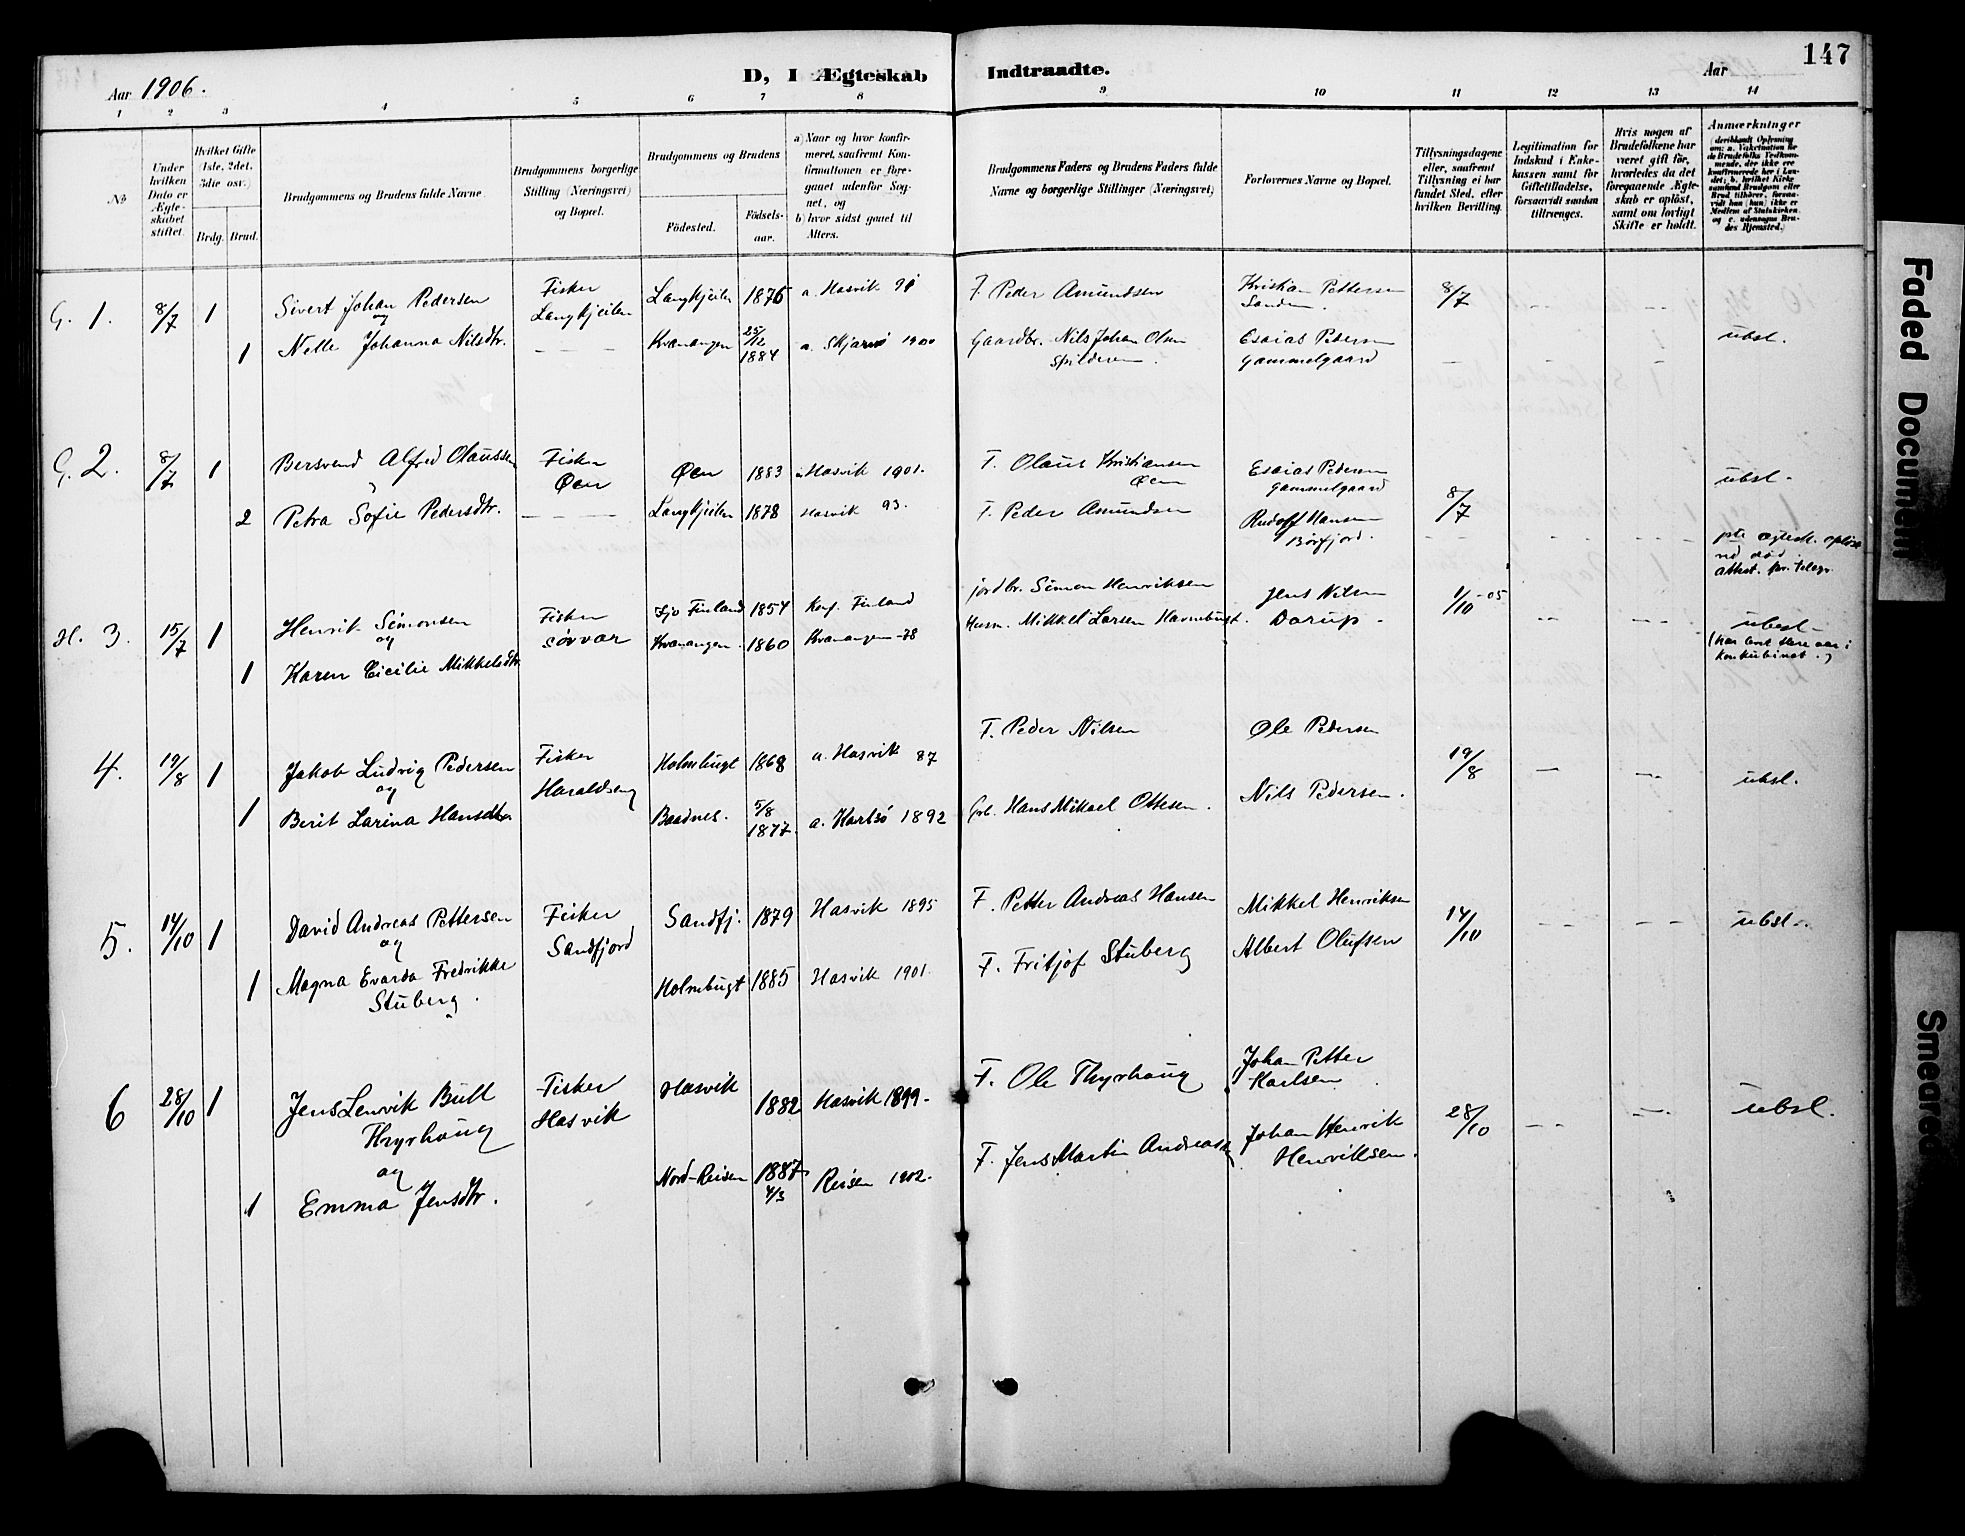 147
Aar 1906.
D, I Ægteskab Indtraadte.
Aar
1 2 3 4 5 6 7 8 9 10 11 12 13 14
No
Under hvilken Dato er Ægteskabet stiftet.
Hvilket Gifte (1ste, 2det, 3die osv.)
Brdg. Brud.
Brudgommens og Brudens fulde Navne.
Brudgommens borgerlige Stilling (Næringsvei) og Bopæl.
Brudgommens og Brudens
Fødested.
Fødsels-aar.
a) Naar og hvor konfirmeret, saafremt Konfirmationen er foregaaet udenfor Sognet, og
b) hvor sidst gaaet til Alters.
Brudgommens Faders og Brudens Faders fulde Navne og borgerlige Stillinger (Næringsvei)
Forlovernes Navne og Bopæl.
Tillysningsdagene eller, saafremt Tillysning ei har fundet Sted, efter hvilken Bevilling.
Legitimation for Indskud i Enkekassen samt for Giftetilladelse, forsaavidt saadan tiltrænges.
Hvis nogen af Brudefolkene har været gift før, hvorledes da det foregaaende Ægteskab er opløst, samt om lovligt Skifte er holdt.
Anmærkninger
G. 1. 8/7 1 Sivert Johan Pedersen Fisker Langkjeilen Langkjeilen 1876 a. Hasvik 91 F. Peder Amundsen Kristian Pettersen Sanden 8/7
og
1 Nelle Johanna Nilsdtr. Kvænangen 25/12 1884 a. Skjærvø 1900 Gaardbr. Nils Johan Olsen Spilderen. Esaias Pedersen Gammelgaard ubsl.
G. 2. 8/7 1 Bersvend Alfred Olaussen Fisker Øen Øen 1883 Hasvik 1901. F. Olaus Kristiansen Øen Esaias Pedersen Gammelgaard ubsl.
2 Petra Sofie Pedersdtr. Langkjeilen 1878 Hasvik 93. F. Peder Amundsen Rudolf Hansen Børfjord. 8/7
ægtesk. opløst ved død.
H. 3. 15/7 1 Henrik Simonsen Fisker Sørvær Finland 1854 Finland jordbr. Simon Henriksen Jens Nilsen 1/10-05
og
1 Karen Cicilie Mikkelsdtr. Kvænangen. 1860 Kvænangen -78 Husm. Mikkel Larsen Havnbugt. Dorup. ubesl.
(har levet flere aar i konkubinat.)
4. 19/8 1 Jakob Ludvig Pedersen Fisker Haraldseng Holmbugt 1868 a. Hasvik 87 F. Peder Nilsen Ole Pedersen 19/8 ubsl.
og
1 Berit Larina Hansdtr. Baadnes. 5/8 1877. a. Karlsø 1892 Grb. Hans Mikael Ottesen. Nils Pedersen.
5. 14/10 1 David Andreas Pettersen Fisker Sandfjord Sandfj. 1879 Hasvik 1895 F. Petter Andreas Hansen Mikkel Henriksen 14/10 ubsl.
og
1 Magna Evarda Fredrikke Stuberg. Holmbugt 1885 Hasvik 1901. F. Fritjof Stuberg Albert Olufsen
6 28/10 1 Jens Lenvik Bull Thyrhaug Fisker Hasvik Hasvik 1882 Hasvik 1899. F. Ole Thyrhaug Johan Petter Karlsen 28/10 ubsl.
og
1 Emma Jensdtr. Nord-Reisen 1887 4/3 Reisen 1902. F. Jens Martin Andreassen Johan Henrik Henriksen.
Faded Document
Smeared